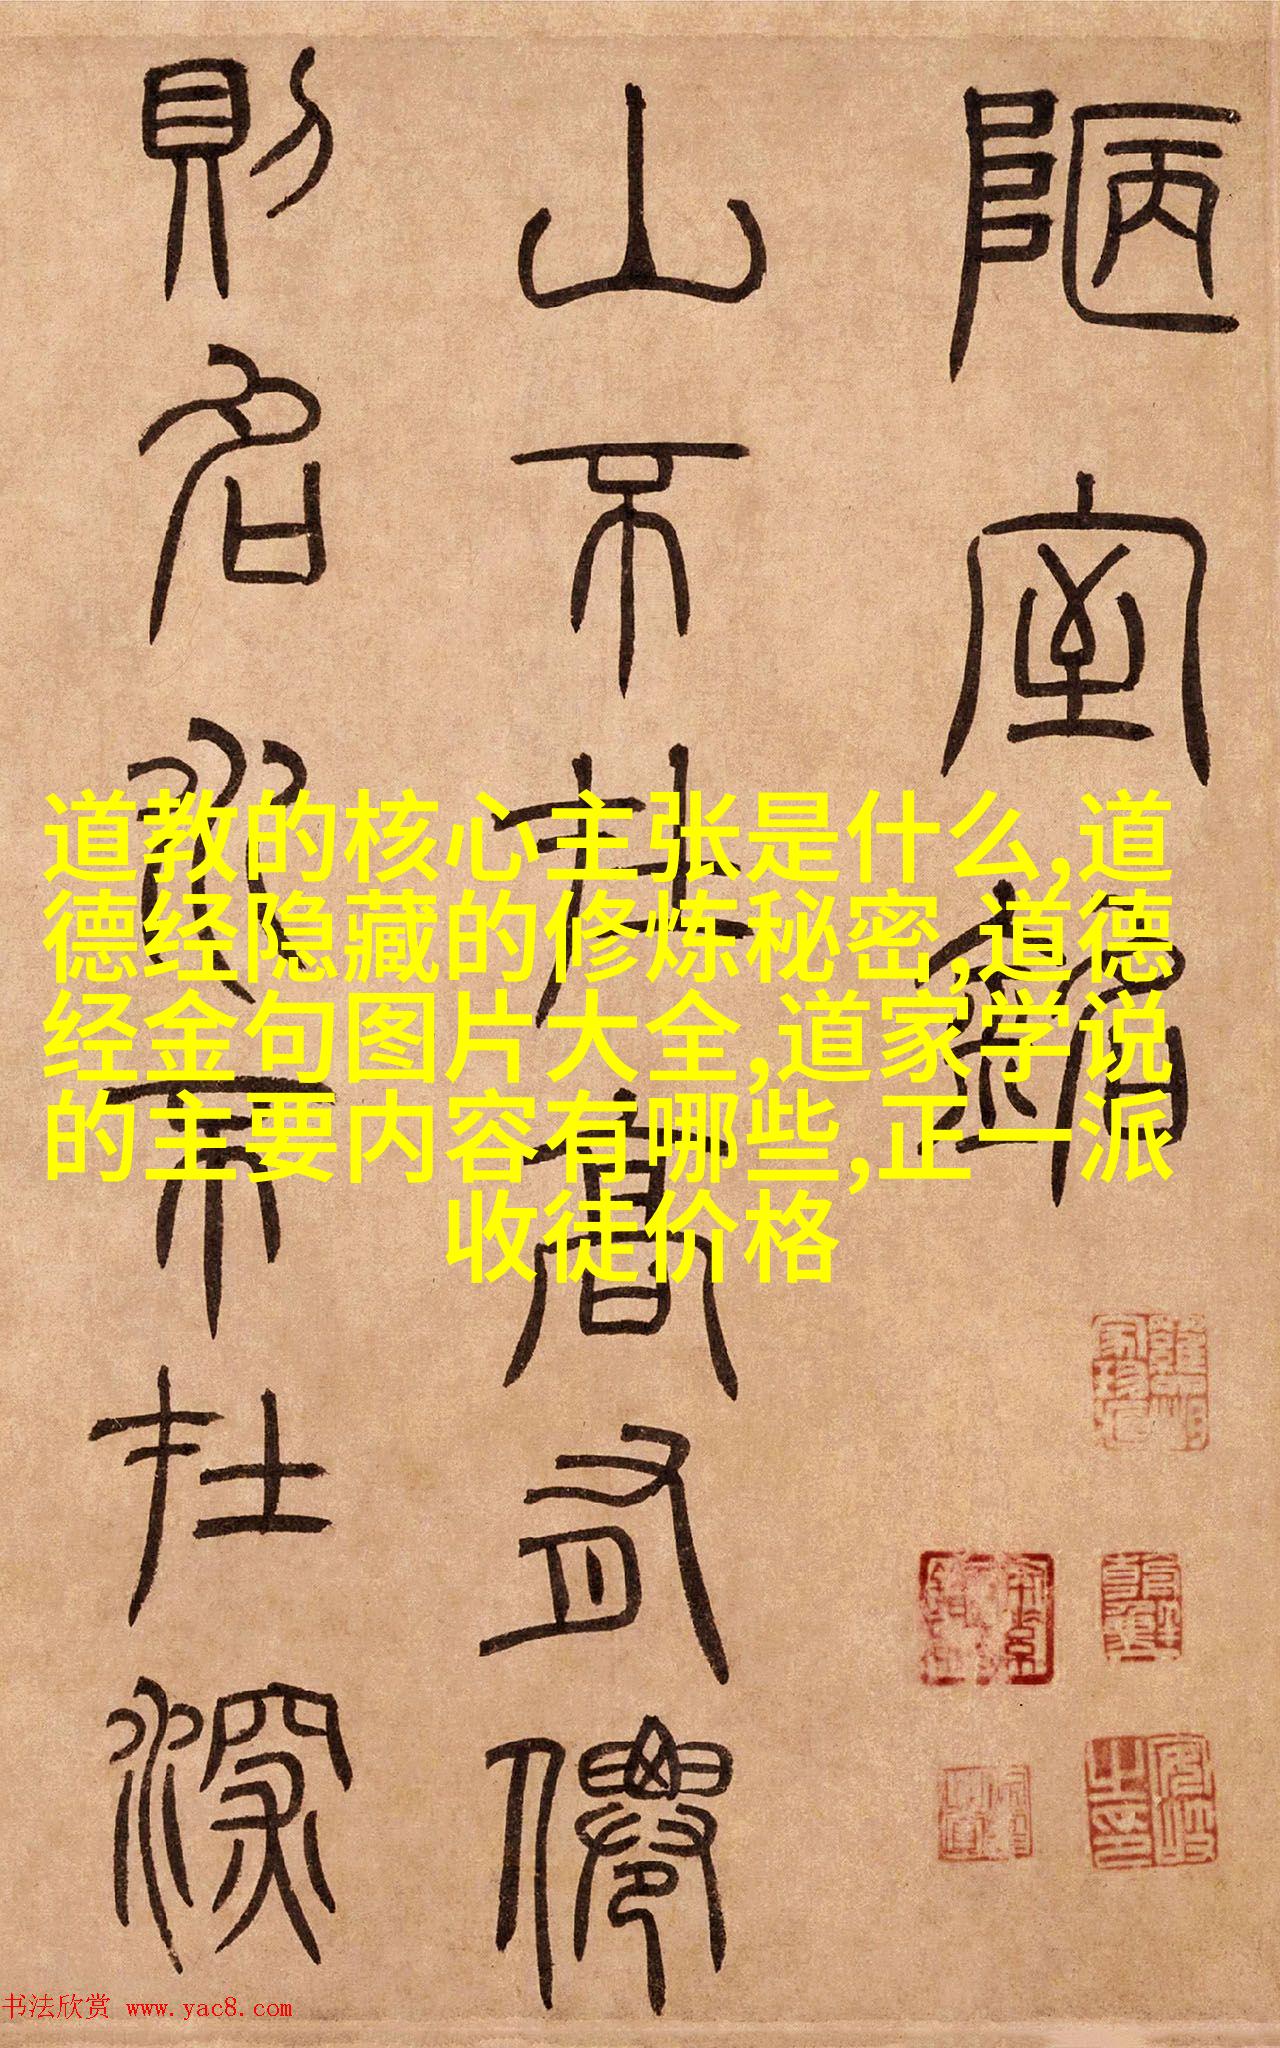 陋室銘
山不在高有僊
則名水不在深
道教的核心主张是什么,道
德经隐藏的修炼秘密,道德
经金句图片大全,道家学说
的主要内容有哪些,正一派
收徒价格
书法欣赏 www.yac8.com